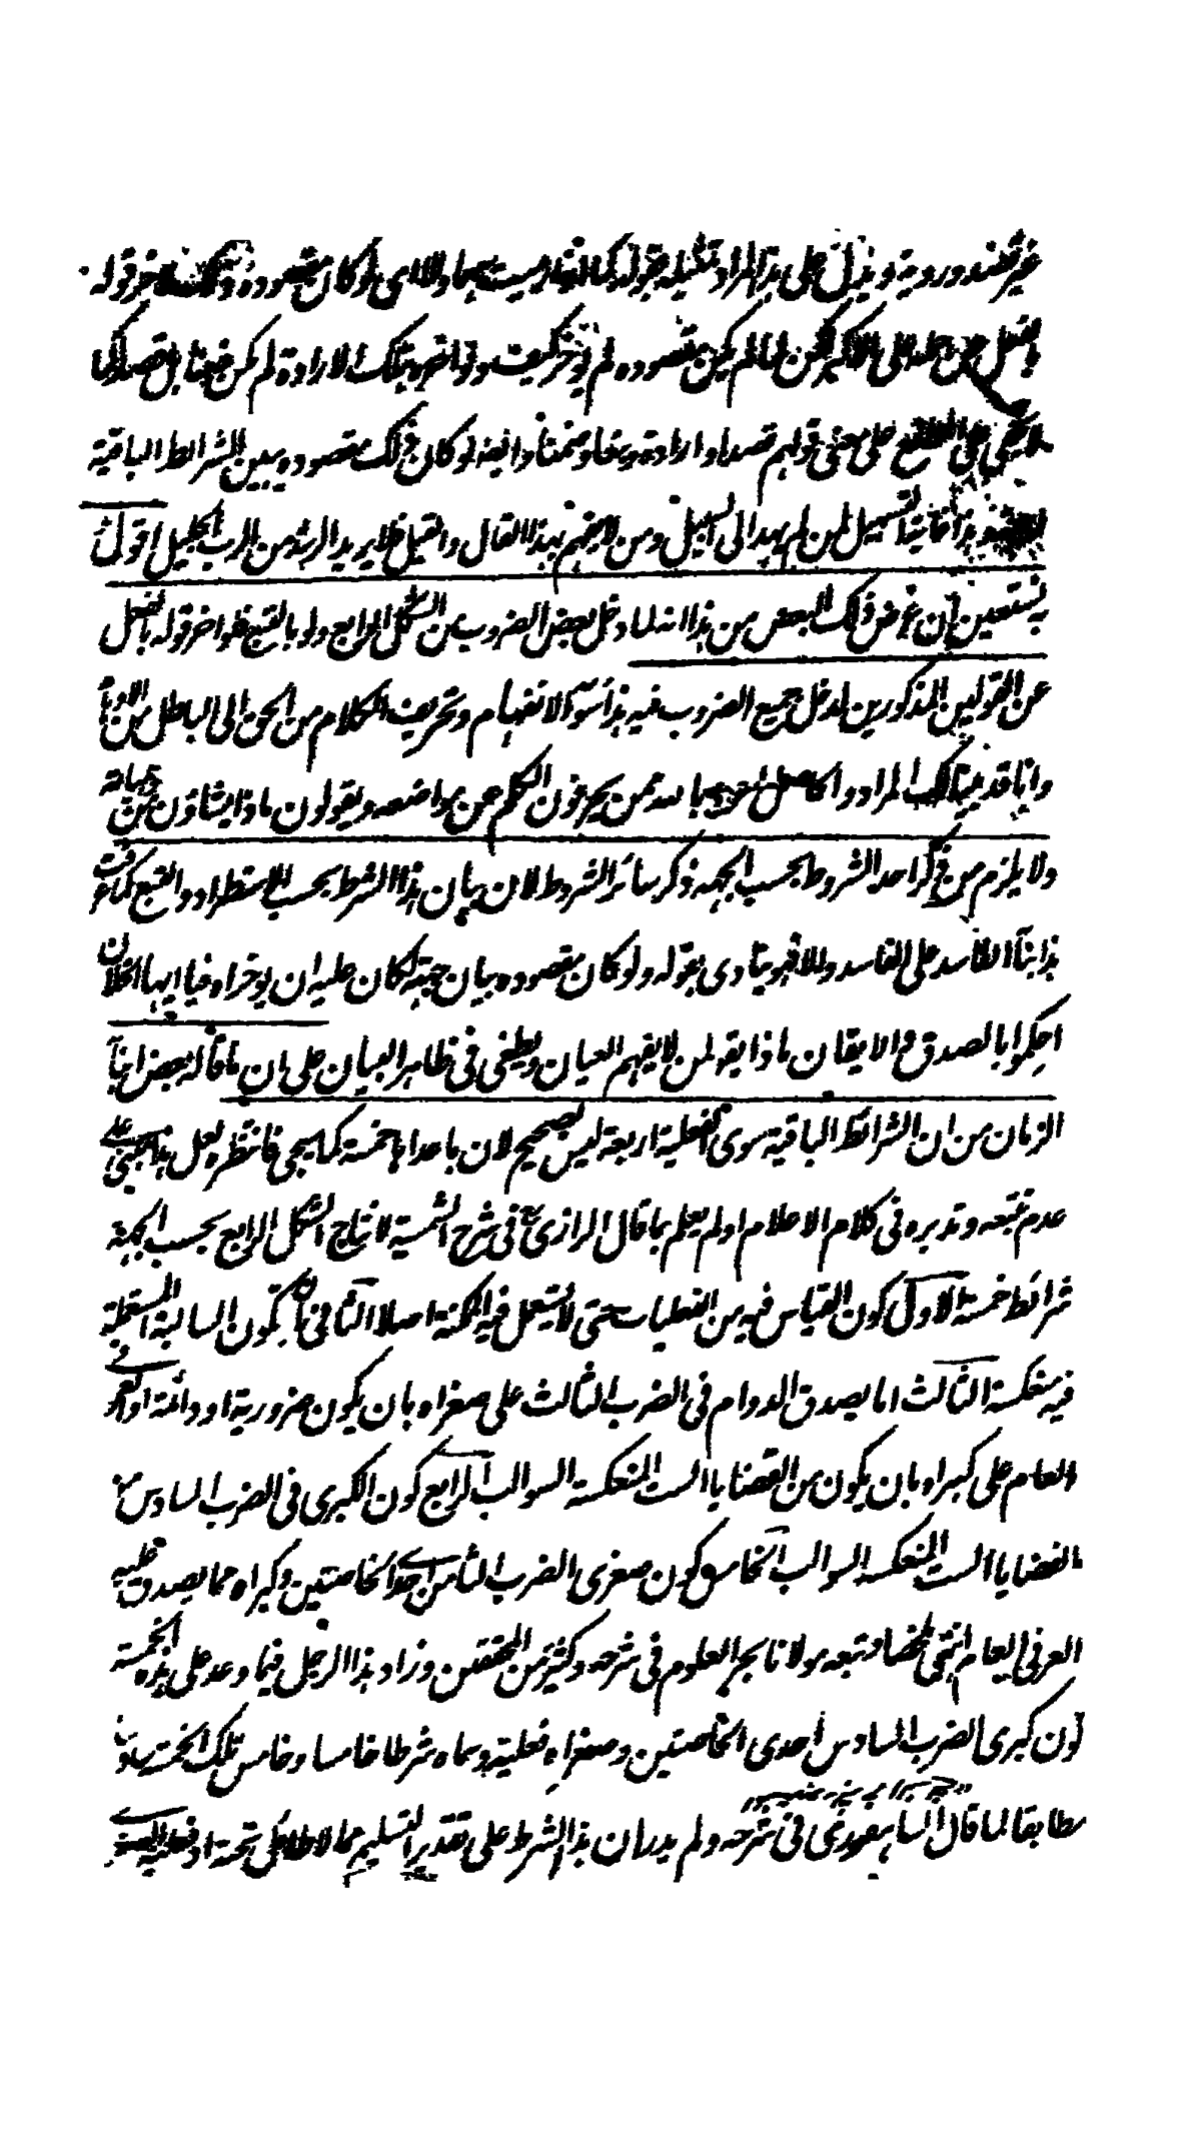 على هذا المراد تمثيله بقوله كما ولا اى لو كان مقصوده قوله
لما لم يكن مقصوده لم يؤخر كيف ولو اخره بتلك الارادة لم يكن
على معنى قولهم قصدا وارادة وضمنا وايضا لو كان ذلك مقصوده يبين الشرائط الباقية
لمن لم يهد الى السبيل ومن لا يفهم بهذا القال والقيل فلا يريد الرشد من الرب الجليل اقول
به نستعين ان غرض ذلك البعض من هذا انه لما دخل بعض الضروب من الشكل الرابع ولو بالتبع فلو اخر قوله بالفعل
عن القولين المذكورين لدخل جميع الضروب فيه هذا سوء الانفهام وتحريف الكلام من الحق الى الباطل من
وانا قد بينا لك المراد والحاصل اعوذ بالله ممن يحرفون الكلم عن مواضعه ويقولون ماذا يشاؤن من
ولا يلزم من ذكر احد الشروط بحسب الجهة ذكر سائر الشروط لان بيان هذا الشرط بحسب الاستطراد والتبع كما عرفت
هذا بناء الفاسد على الفاسد والا فهو ينادى بقوله ولو كان مقصوده بيان جهته لكان عليه ان يؤخراه فيا ايها الخلان
احكموا بالصدق والايقان ماذا يقول من لا يفهم العيان ويطغى فى ظاهر البيان على ان ما قاله بعض ابناء
الزمان من ان الشرائط الباقية سوى الفعلية اربعة ليس بصحيح لان ما عداها خمسة كما سيجى فانتظره لعل هذا مبنى على
عدم تتبعه وتدبره فى كلام الاعلام اولم يعلم بما قال الرازى رح فى شرح الشمسية لانتاج الشكل الرابع بحسب الجهة
شرائط خمسة الاول كون القياس فيه من الفعليات حتى لا يستعمل فيه الممكنة اصلا الثانى ان تكون السالبة المستعملة
فيه منعكسة الثالث اما يصدق الدوام فى الضرب الثالث على صغراه بان يكون ضرورية او دائمة او العرفى
العام على كبراه بان يكون من القضايا الست المنعكسة السوالب الرابع كون الكبرى فى الضرب السادس من
القضايا الست المنعكسة السوالب الخامس كون صغرى الضرب الثامن احدى الخاصتين وكبراه مما يصدق عليه
العرفى العام انتهى ملخصا وتبعه مولانا بحر العلوم فى شرحه وكثير من المحققين وزاد هذا الرجل فيما وعد على هذه الخمسة
كون كبرى الضرب السادس احدى الخاصتين وصغراه فعلية وسماه شرطا خامسا وخامس تلك الخمسة سادسا
مطابقا لما قال فى شرحه ولم يدر ان هذا الشرط على تقدير التسليم مما لا طائل تحته